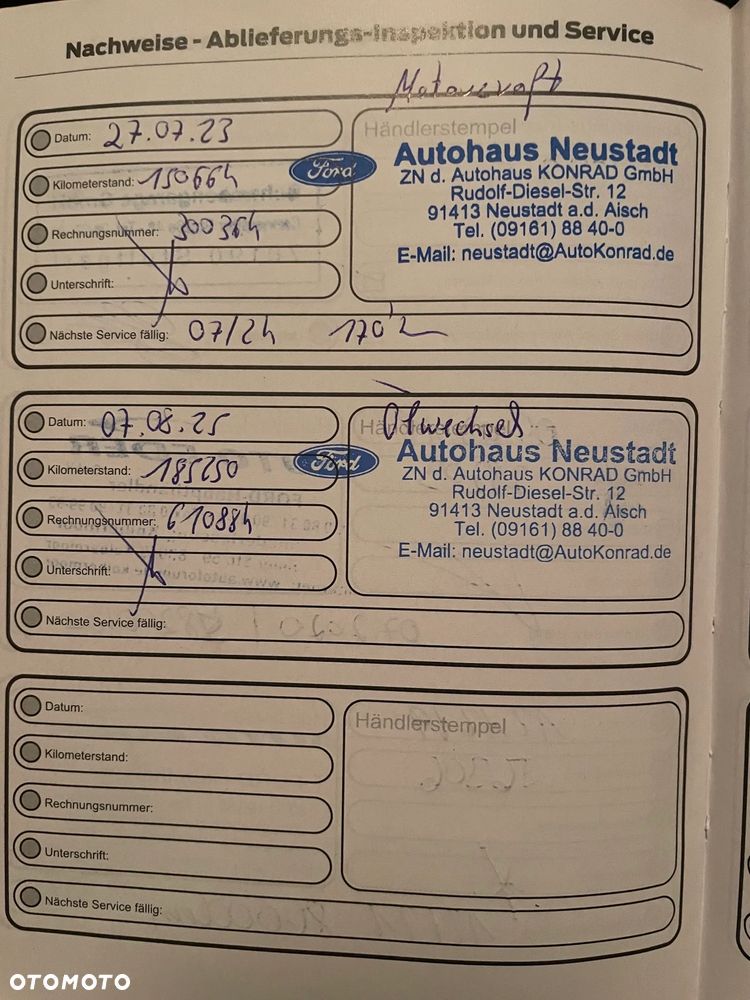 Nachweise - Ablieferungs-Inspektion und Service
Motorcraft
Datum: 27.07.23
Händlerstempel
Kilometerstand: 150664
Rechnungsnummer: 300364
Unterschrift:
Nächste Service fällig: 07/24
Ford
Autohaus Neustadt
ZN d. Autohaus KONRAD GmbH
Rudolf-Diesel-Str. 12
91413 Neustadt a.d. Aisch
Tel. (09161) 88 40-0
E-Mail: neustadt@AutoKonrad.de
Datum: 07.08.25
Ölwechsel
Kilometerstand: 185250
Rechnungsnummer: 610884
Unterschrift:
Nächste Service fällig:
Ford
Autohaus Neustadt
ZN d. Autohaus KONRAD GmbH
Rudolf-Diesel-Str. 12
91413 Neustadt a.d. Aisch
Tel. (09161) 88 40-0
E-Mail: neustadt@AutoKonrad.de
Datum:
Händlerstempel
Kilometerstand:
Rechnungsnummer:
Unterschrift:
Nächste Service fällig:
OTOMOTO